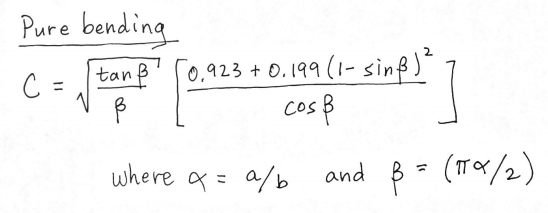 Pure bending
C = √(tan β / β) [(0.923 + 0.199 (1 - sin β)²) / cos β]
where α = a/b and β = (πα/2)